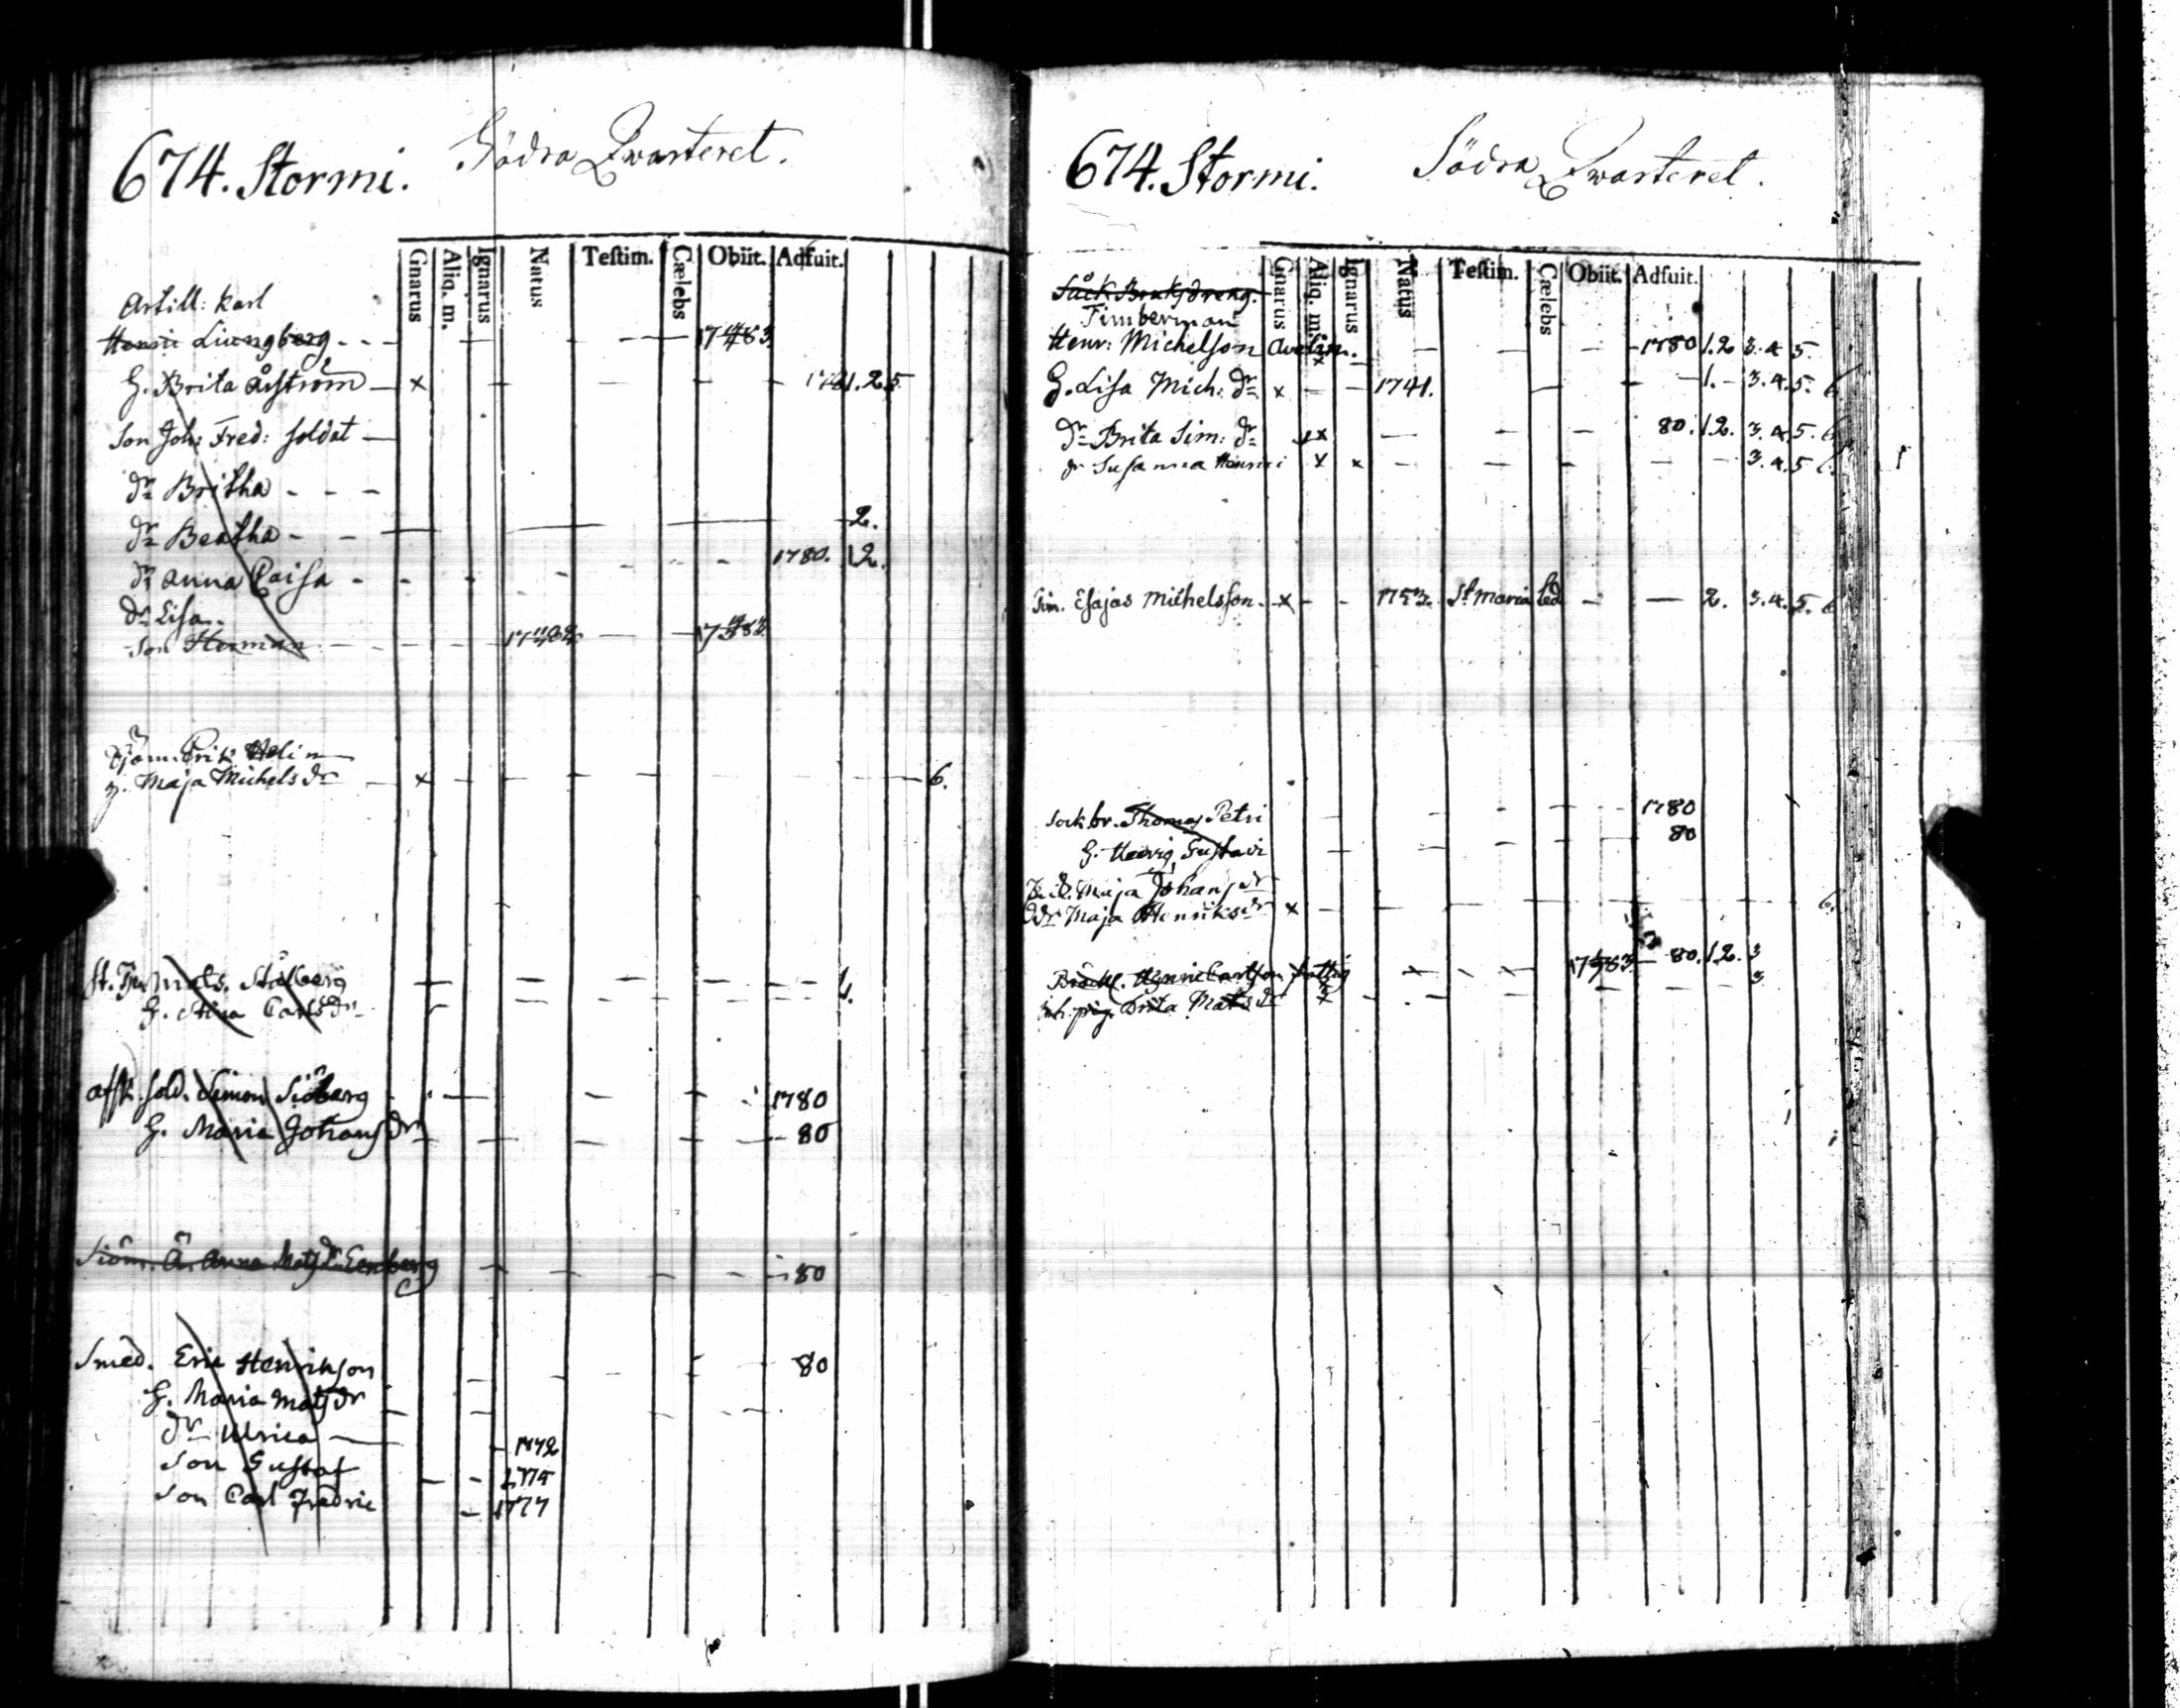 674. Stormi. Södra Qwarteret.
Gnarus Aliq. m. Ignarus Natus Testim. Cælebs Obiit. Adfuit.
Artill: karl
Henric Liungberg - - - 1783
H. Brita Åström - x - 1781. 2. 5.
Son Joh: Fred: soldat -
dr Britha - - -
dr Beatha - - 2.
dr Anna Caisa - - 1780. 1 2.
dr Lisa
Son Herman
Sjöm. Erik Helin
H. Maja Michelsdr - x - 6.
Mats. Stålberg
H. Stina Carlsdr
Afsk. sold. Simon Siöberg 1780
H. Maria Johansdr - 80
Siöm. Anna Matsdr Eenberg - 80
Smed. Eric Henrikson 80
H. Maria Matsdr
dr Ulrica - 1772
Son Gustaf - 1775
Son Carl Fredric - 1777
674. Stormi. Södra Qwarteret.
Gnarus Aliq. m. Ignarus Natus Testim. Cælebs Obiit. Adfuit.
Såck Bruksdreng.
Timberman
Henr: Michelson Avelin. x - - - 1780 1. 2 3. 4 5.
H. Lisa Mich: dr x - - 1741. - - 1. - 3. 4. 5. 6
dr Brita Sim: dr x - - 80. 1. 2. 3. 4. 5. 6
dr Susanna Henrici x x - - - 3. 4. 5 6.
Tim. Esajas Michelsson. - x - - 1753. St Maria led - - 2. 3. 4. 5. 6
Sock.br. Thomas Petri - - - 1780
H. Hedvig Gustavi - - - 80
Maja Johansdr
Maja Henriksdr x - - 6.
Henric Carlson fattig - - - 1783 - 80. 1. 2. 3
inh. pig. Brita Matsdr x - - - 3